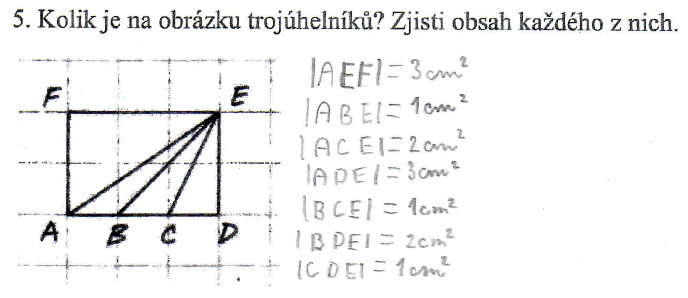 5. Kolik je na obrázku trojúhelníků? Zjisti obsah každého z nich.
F E
A B C D
|AEF| = 3 cm²
|ABE| = 1 cm²
|ACE| = 2 cm²
|ADE| = 3 cm²
|BCE| = 1 cm²
|BDE| = 2 cm²
|CDE| = 1 cm²